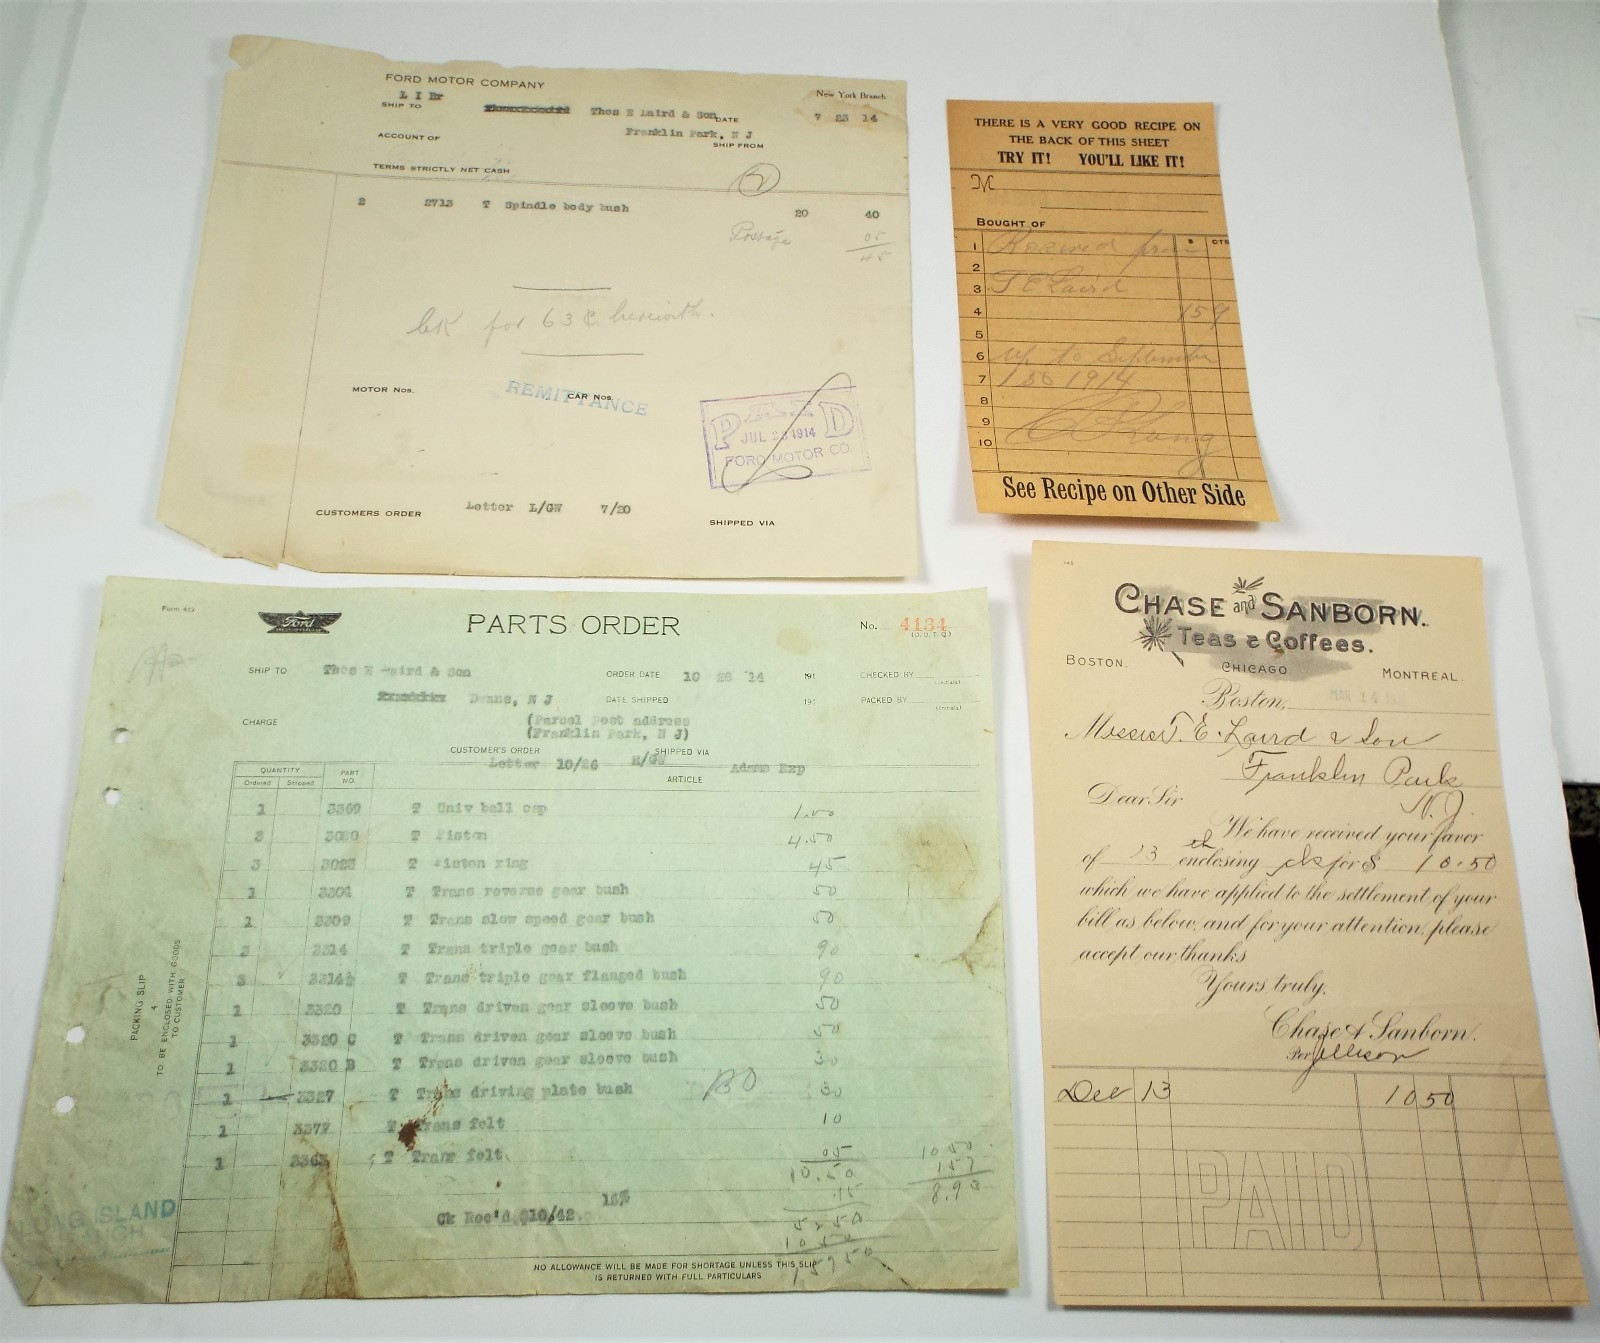 FORD MOTOR COMPANY
L I Br
New York Branch
SHIP TO
Thos E Laird & Son
DATE
7 23 14
Franklin Park, N J
ACCOUNT OF
SHIP FROM
TERMS STRICTLY NET CASH
2
2 2713 T Spindle body bush 20 40
Postage 05
45
CK for 63 ¢ herewith.
MOTOR Nos.
CAR Nos.
REMITTANCE
PAID
JUL 23 1914
FORD MOTOR CO.
CUSTOMERS ORDER
Letter L/GW 7/20
SHIPPED VIA
THERE IS A VERY GOOD RECIPE ON
THE BACK OF THIS SHEET
TRY IT! YOU'LL LIKE IT!
M
BOUGHT OF
$ CTS
1 Received from
2
3 T E Laird
4 159
5
6 up to September
7 1 1914
8
9
10
See Recipe on Other Side
Form 463
Ford
PARTS ORDER
No. 4134
(O. O. T. Q.)
SHIP TO
Thos E Laird & Son
ORDER DATE 10 28 14 191
CHECKED BY
(Initials)
Deans, N J
DATE SHIPPED 191
PACKED BY
(Initials)
CHARGE
(Parcel Post address
(Franklin Park, N J)
CUSTOMER'S ORDER
SHIPPED VIA
Letter 10/26 H/GW
Adams Exp
QUANTITY
Ordered Shipped
PART NO.
ARTICLE
1 3369 T Univ ball cap 1.00
3020 T Piston 4.50
3 3028 T Piston ring 45
1 3304 T Trans reverse gear bush 50
1 3309 T Trans slow speed gear bush 50
3 3314 T Trans triple gear bush 90
3 3314½ T Trans triple gear flanged bush 90
1 3320 T Trans driven gear sleeve bush 50
1 3320 C T Trans driven gear sleeve bush 50
1 3320 B T Trans driven gear sleeve bush 30
1 3327 T Trans driving plate bush BO 30
1 3377 T Trans felt 10
1 3363 T Trans felt 05
10.50
10 50
157
8.93
15%
.15
Ck Rec'd $10/42
5250
1050
15750
PACKING SLIP
4
TO BE ENCLOSED WITH GOODS
TO CUSTOMER
LONG ISLAND
NO ALLOWANCE WILL BE MADE FOR SHORTAGE UNLESS THIS SLIP
IS RETURNED WITH FULL PARTICULARS
CHASE and SANBORN.
Teas & Coffees.
BOSTON.
CHICAGO
MONTREAL.
Boston, MAR 14 19
Messrs T. E. Laird & Son
Franklin Park
N. J.
Dear Sir
We have received your favor
of 13 th enclosing ck for $ 10.50
which we have applied to the settlement of your
bill as below, and for your attention, please
accept our thanks
Yours truly,
Chase & Sanborn.
Per
Dec 13 10 50
PAID